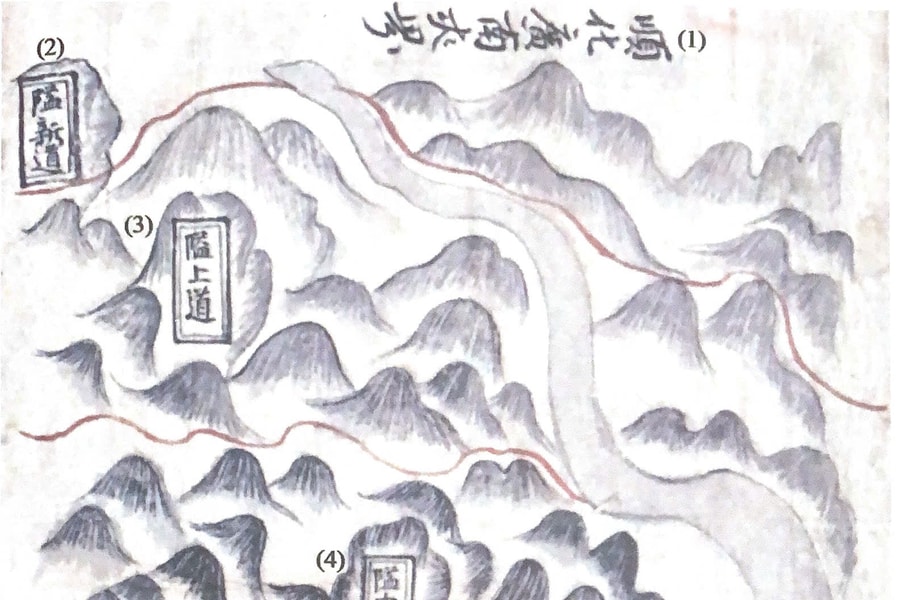 (1) 順化廣南
(2)
隘新道
(3)
隘上道
(4)
隘